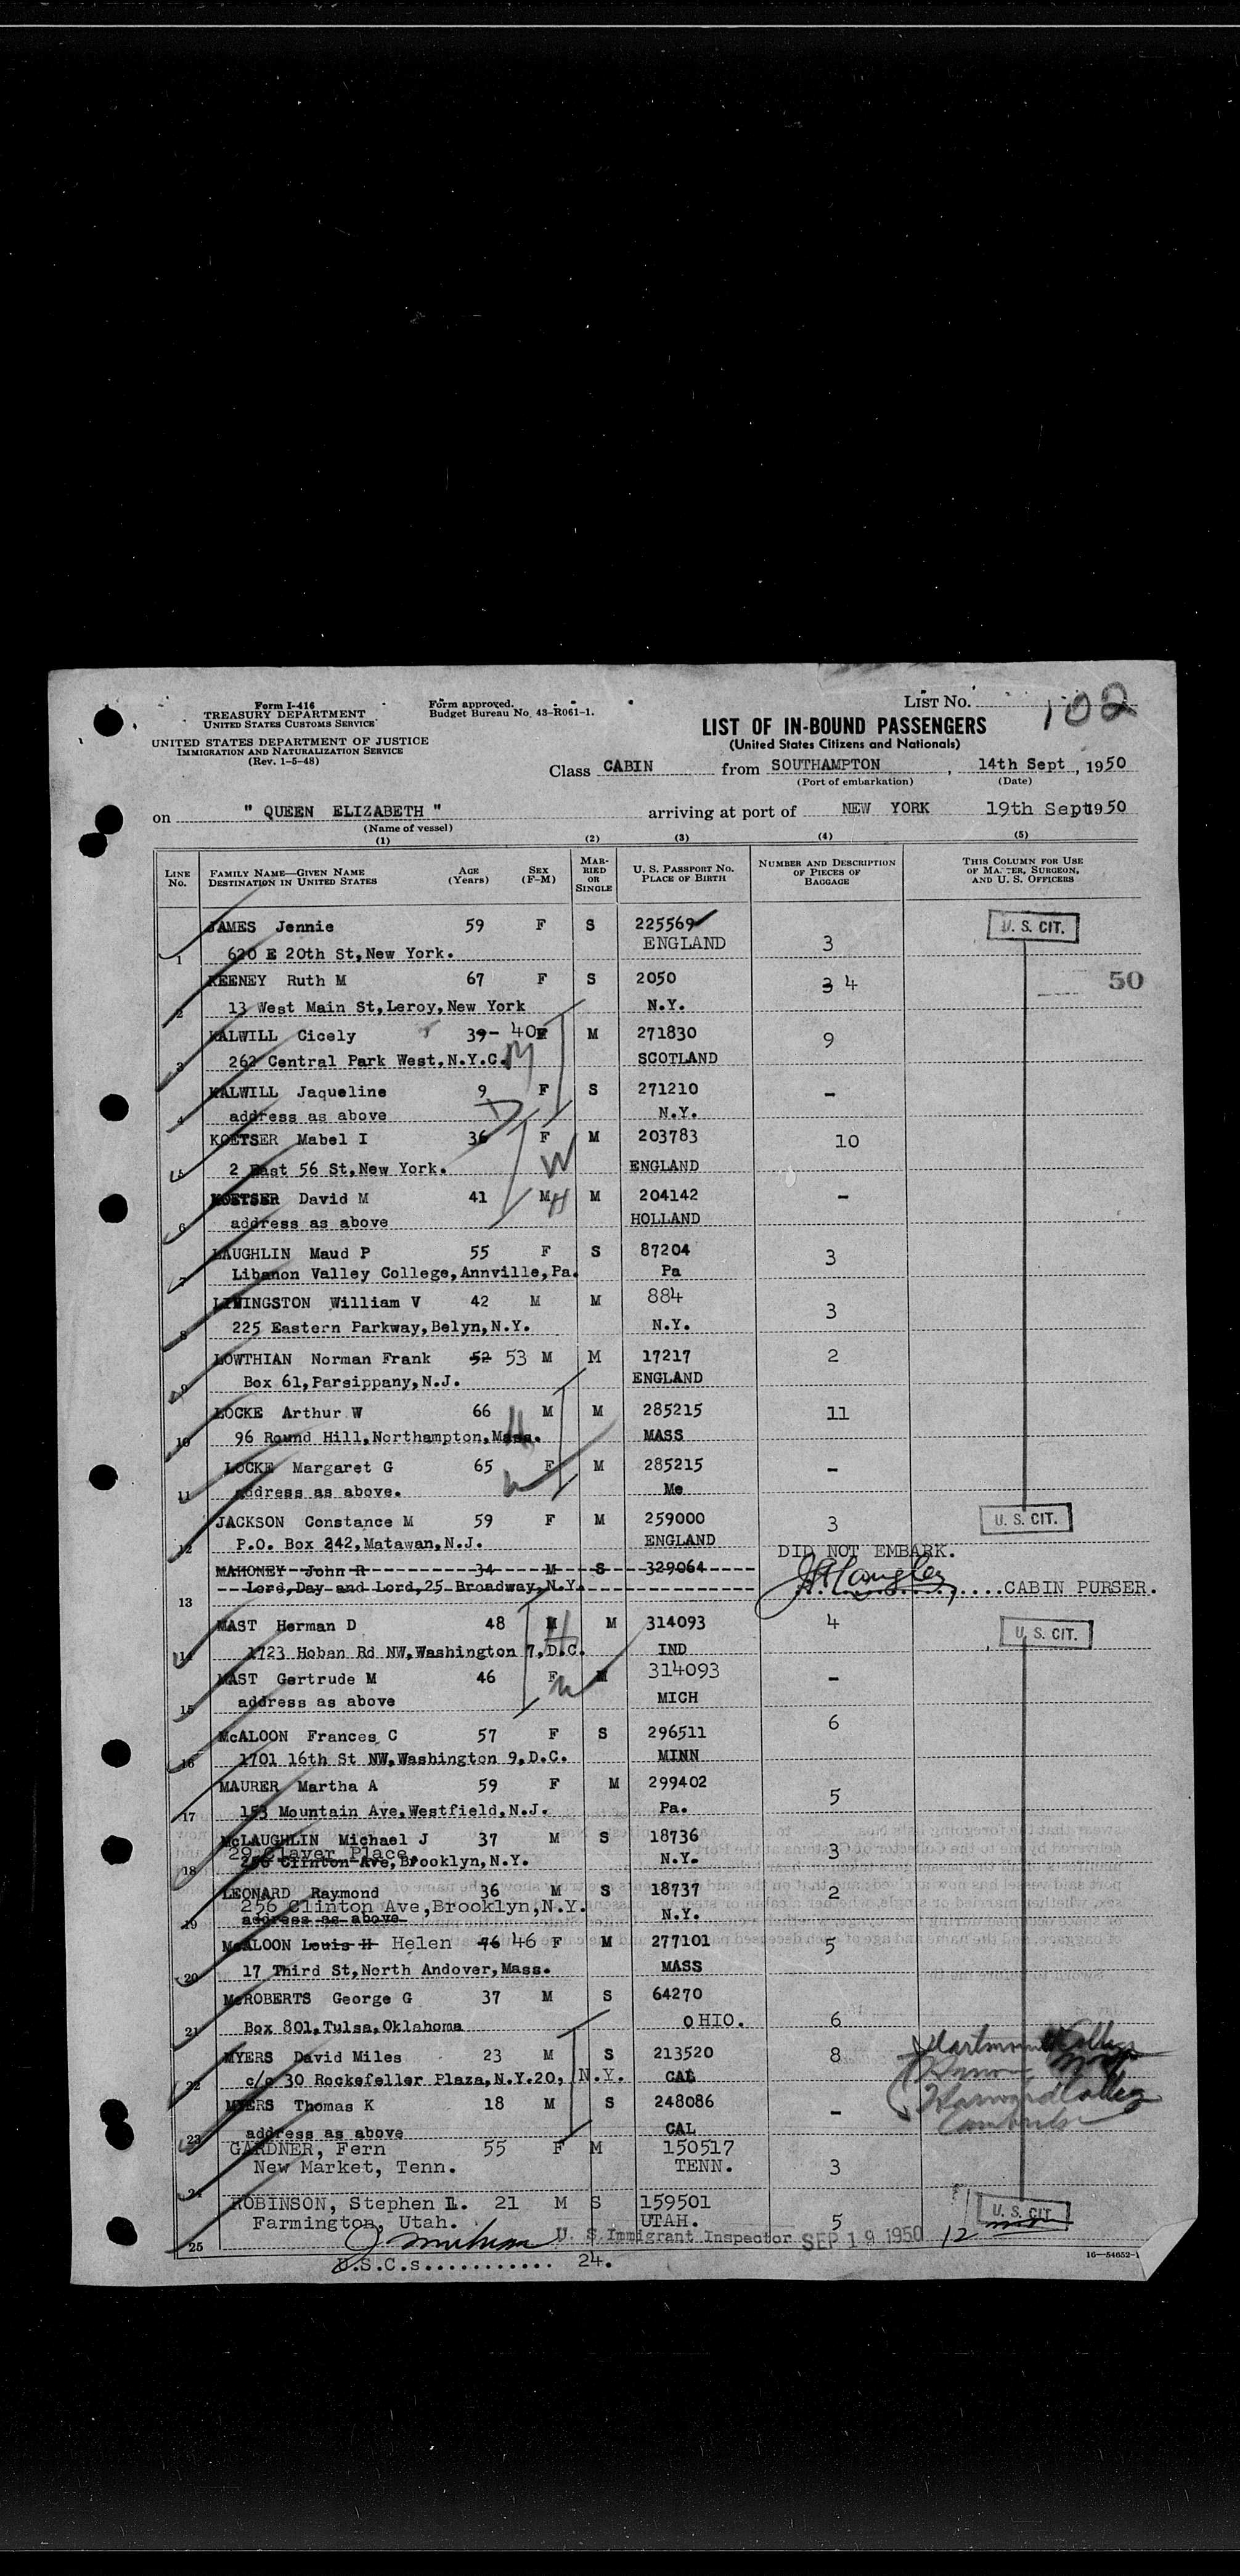 Form I-416
TREASURY DEPARTMENT
UNITED STATES CUSTOMS SERVICE
Form approved.
Budget Bureau No. 43-R061-1.
LIST No. 102
UNITED STATES DEPARTMENT OF JUSTICE
IMMIGRATION AND NATURALIZATION SERVICE
(Rev. 1-5-48)
LIST OF IN-BOUND PASSENGERS
(United States Citizens and Nationals)
Class CABIN from SOUTHAMPTON, 14th Sept, 1950
(Port of embarkation) (Date)
on " QUEEN ELIZABETH " arriving at port of NEW YORK 19th Sept 1950
(Name of vessel)
(1) (2) (3) (4) (5)
LINE No. FAMILY NAME—GIVEN NAME DESTINATION IN UNITED STATES AGE (Years) SEX (F-M) MARRIED OR SINGLE U. S. PASSPORT No. PLACE OF BIRTH NUMBER AND DESCRIPTION OF PIECES OF BAGGAGE THIS COLUMN FOR USE OF MASTER, SURGEON, AND U. S. OFFICERS
JAMES Jennie 59 F S 225569 U. S. CIT.
1 620 E 20th St,New York. ENGLAND 3
KEENEY Ruth M 67 F S 2050 3 4 50
2 13 West Main St,Leroy,New York N.Y.
KALWILL Cicely 39- 40 F M 271830 9
3 262 Central Park West,N.Y.C. M SCOTLAND
KALWILL Jaqueline 9 F S 271210 -
4 address as above D N.Y.
KOETSER Mabel I 36 F M 203783 10
5 2 East 56 St,New York. W ENGLAND
KOETSER David M 41 M H M 204142 -
6 address as above HOLLAND
LAUGHLIN Maud P 55 F S 87204 3
7 Libanon Valley College,Annville,Pa. Pa
LIVINGSTON William V 42 M M 884 3
8 225 Eastern Parkway,Belyn,N.Y. N.Y.
LOWTHIAN Norman Frank 52 53 M M 17217 2
9 Box 61,Parsippany,N.J. ENGLAND
LOCKE Arthur W 66 M M 285215 11
10 96 Round Hill,Northampton,Mass. H MASS
LOCKE Margaret G 65 F M 285215 -
11 address as above. W Me
JACKSON Constance M 59 F M 259000 3 U. S. CIT.
12 P.O. Box 242,Matawan,N.J. ENGLAND
DID NOT EMBARK.
MAHONEY John R 34 M S 329064
Lord,Day and Lord,25 Broadway,N.Y. ....CABIN PURSER.
13
MAST Herman D 48 M H M 314093 4 U. S. CIT.
14 1723 Hoban Rd NW,Washington 7,D.C. IND
MAST Gertrude M 46 F W M 314093 -
15 address as above MICH
McALOON Frances C 57 F S 296511 6
16 1701 16th St NW,Washington 9,D.C. MINN
MAURER Martha A 59 F M 299402 5
17 153 Mountain Ave,Westfield,N.J. Pa.
McLAUGHLIN Michael J 37 M S 18736 3
29 Claver Place,
18 256 Clinton Ave, Brooklyn,N.Y. N.Y.
LEONARD Raymond 36 M S 18737 2
256 Clinton Ave,Brooklyn,N.Y.
19 address as above N.Y.
McALOON Louis H Helen 76 46 F M 277101 5
20 17 Third St,North Andover,Mass. MASS
McROBERTS George G 37 M S 64270
21 Box 801,Tulsa,Oklahoma OHIO. 6
MYERS David Miles 23 M S 213520 8
22 c/o 30 Rockefeller Plaza,N.Y.20, N.Y. CAL
MYERS Thomas K 18 M S 248086 -
23 address as above CAL
GARDNER, Fern 55 F M 150517
24 New Market, Tenn. TENN. 3
ROBINSON, Stephen L. 21 M S 159501 U. S. CIT
Farmington, Utah. UTAH. 5
25 U. S. Immigrant Inspector SEP 19 1950 12
U.S.C.s........... 24.
16—54652-1